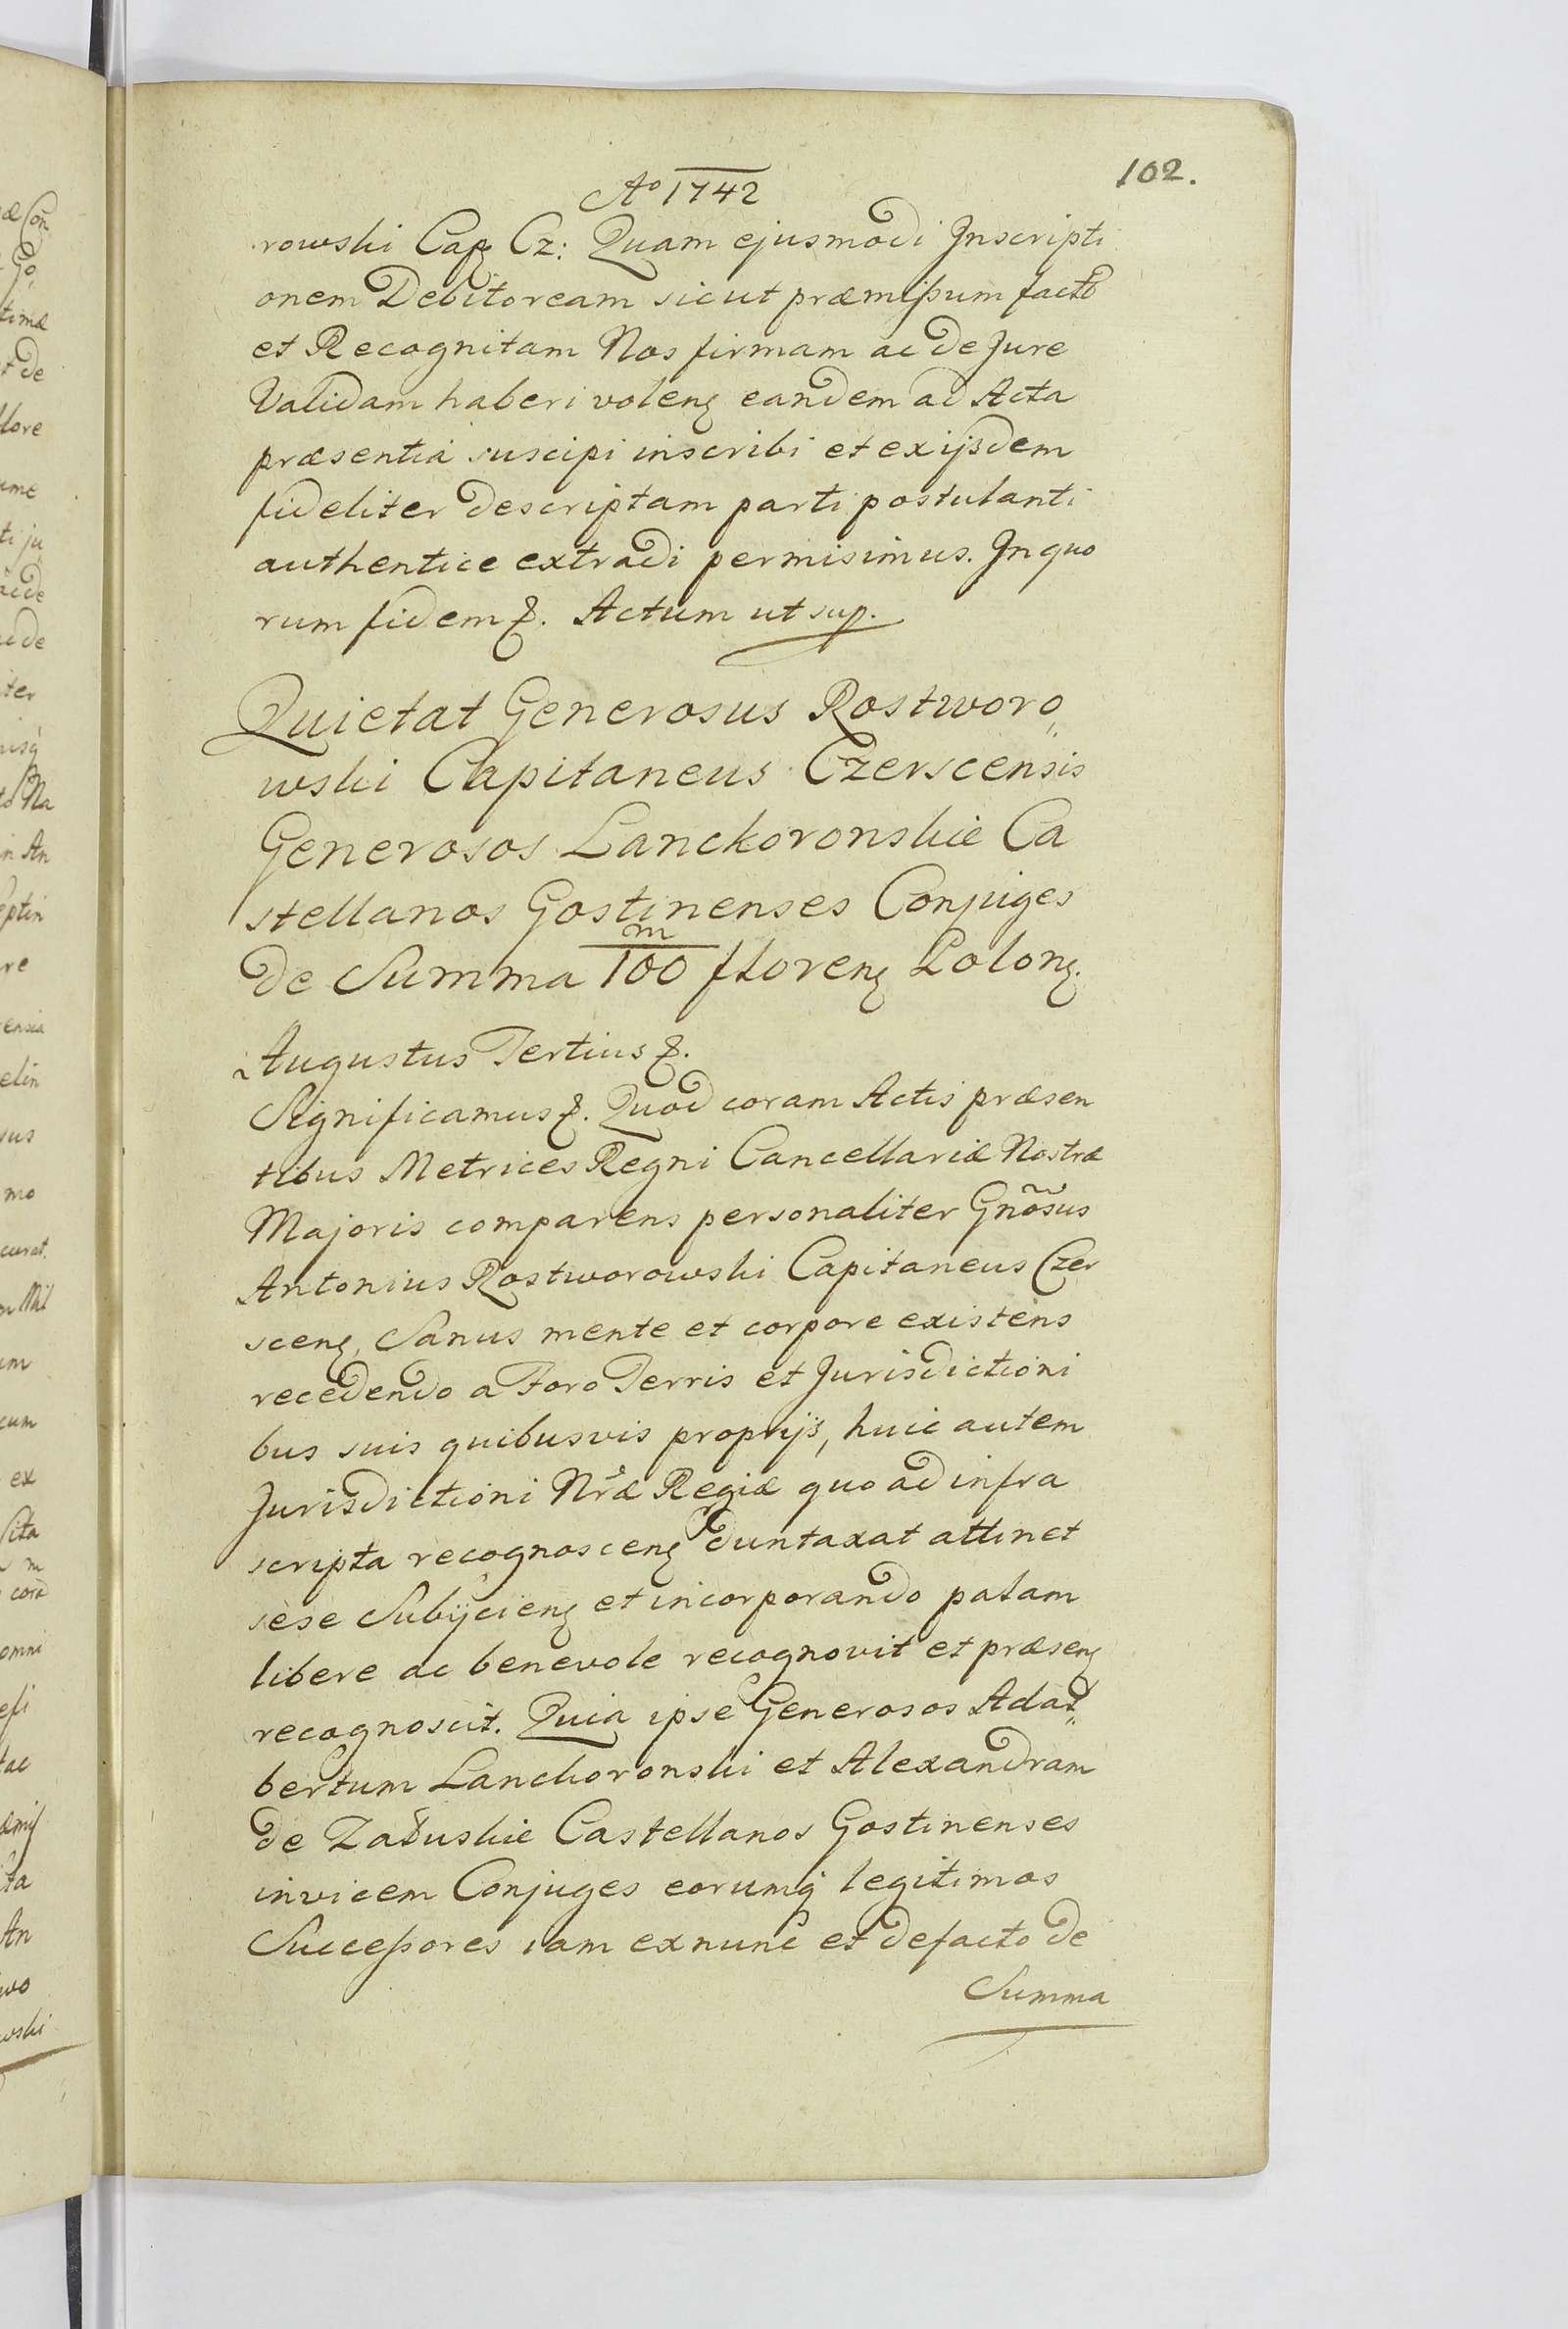 102.
Aº 1742
rowski Cap Cz: Quam ejusmodi Inscripti
onem Debitoream sicut præmißum facto
et Recognitam Nos firmam ac de Jure
Validam haberi volenꝭ eandem ad Acta
præsentia suscipi inscribi et exijsdem
fideliter descriptam parti postulanti
authentice extradi permisimus. In quo
rum fidem &. Actum ut sup.
Quietat Generosus Rostworo„
wski Capitaneus Czerscensis
Generosos Lanckoronskie Ca
stellanos Gostinenses Conjuges
de Summa 100 m florenꝭ Polonꝭ.
Augustus Tertius &.
Significamus &. Quod coram Actis præsen
tibus Metrices Regni Cancellariæ Nostræ
Majoris comparens personaliter Gnõsus
Antonius Rostworowski Capitaneus Czer
scenꝭ, Sanus mente et corpore existens
recedendo a Foro Terris et Jurisdictioni
bus suis quibusvis proprijs, huic autem
Jurisdictioni Nræ Regiæ quo ad infra
scripta recognoscenꝭ duntaxat attinet
sese Subijcienꝭ et incorporando palam
libere ac benevole recognovit et præsenꝭ
recognoscit. Quia ipse Generosos Adal„
bertum Lanckoronski et Alexandram
de Załuskie Castellanos Gostinenses
invicem Conjuges eorumq̃ legitimos
Succeßores iam exnunc et defacto de
Summa